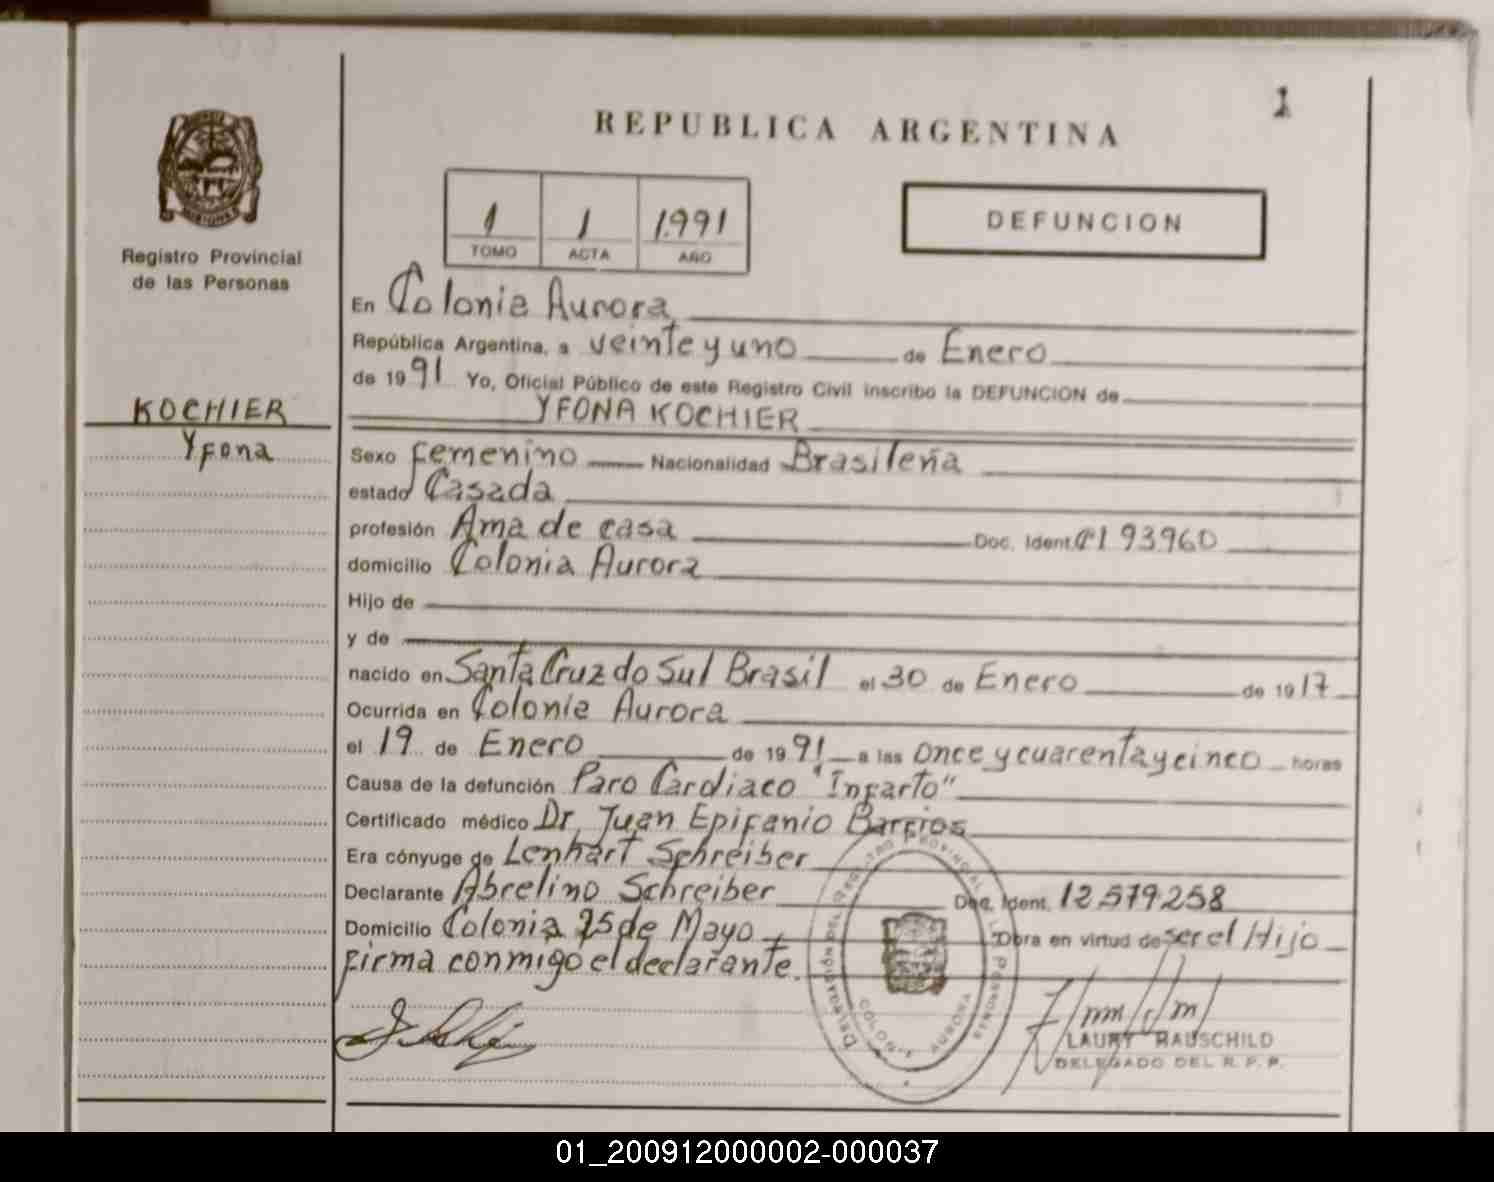 1
REPUBLICA ARGENTINA
MISIONES
Registro Provincial
de las Personas
1 1 1.991
TOMO ACTA AÑO
DEFUNCION
KOCHIER
Yfona
En Colonia Aurora
República Argentina, a veinte y uno de Enero
de 1991 Yo, Oficial Público de este Registro Civil inscribo la DEFUNCION de
YFONA KOCHIER
Sexo femenino Nacionalidad Brasileña
estado Casada
profesión Ama de casa Doc. Ident. CI 93960
domicilio Colonia Aurora
Hijo de
y de
nacido en Santa Cruz do Sul Brasil el 30 de Enero de 1917
Ocurrida en Colonia Aurora
el 19 de Enero de 1991 a las once y cuarenta y cinco horas
Causa de la defunción Paro Cardiaco "Infarto"
Certificado médico Dr. Juan Epifanio Barrios
Era cónyuge de Lenhart Schreiber
Declarante Abrelino Schreiber Doc. Ident. 12579258
Domicilio Colonia 25 de Mayo Obra en virtud de ser el Hijo
firma conmigo el declarante.
DELEGACIÓN DEL REGISTRO PROVINCIAL DE LAS PERSONAS
COLONIA AURORA
LAURY RAUSCHILD
DELEGADO DEL R. P. P.
01_200912000002-000037